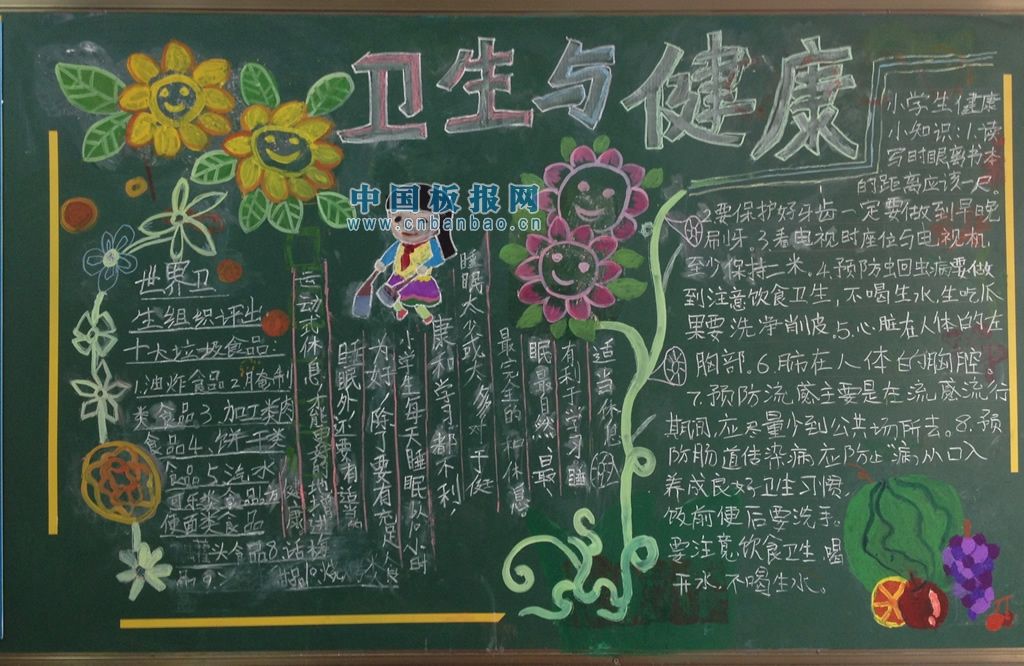 卫生与健康
中国板报网
www.cnbanbao.cn
世界卫
生组织评出
十大垃圾食品
1.油炸食品2.腌制
类食品3.加工类肉
食品4.饼干类
食品5.汽水
可乐类食品6.方
便面类食品
罐头食品8.话梅
适当休息
有利于学习,睡
眠最自然、最
最完全的一种休息
睡眠太少或太多对于
康和学习都不利,
小学生每天睡眠以小时
为好,除了要有充足
睡眠外还要有适当
运动和休息,才能
小学生健康
小知识:1.读
写时眼离书本
的距离应该一尺。
2.要保护好牙齿一定要做到早晚
刷牙。3.看电视时座位与电视机
至少保持二米。4.预防蛔虫病要做
到注意饮食卫生,不喝生水,生吃瓜
果要洗净削皮。5.心脏在人体的左
胸部。6.肺在人体的胸腔。
7.预防流感主要是在流感流行
期间,应尽量少到公共场所去。8.预
防肠道传染病应防止"病从口入
养成良好卫生习惯,
饭前便后要洗手。
要注意饮食卫生,喝
开水,不喝生水。